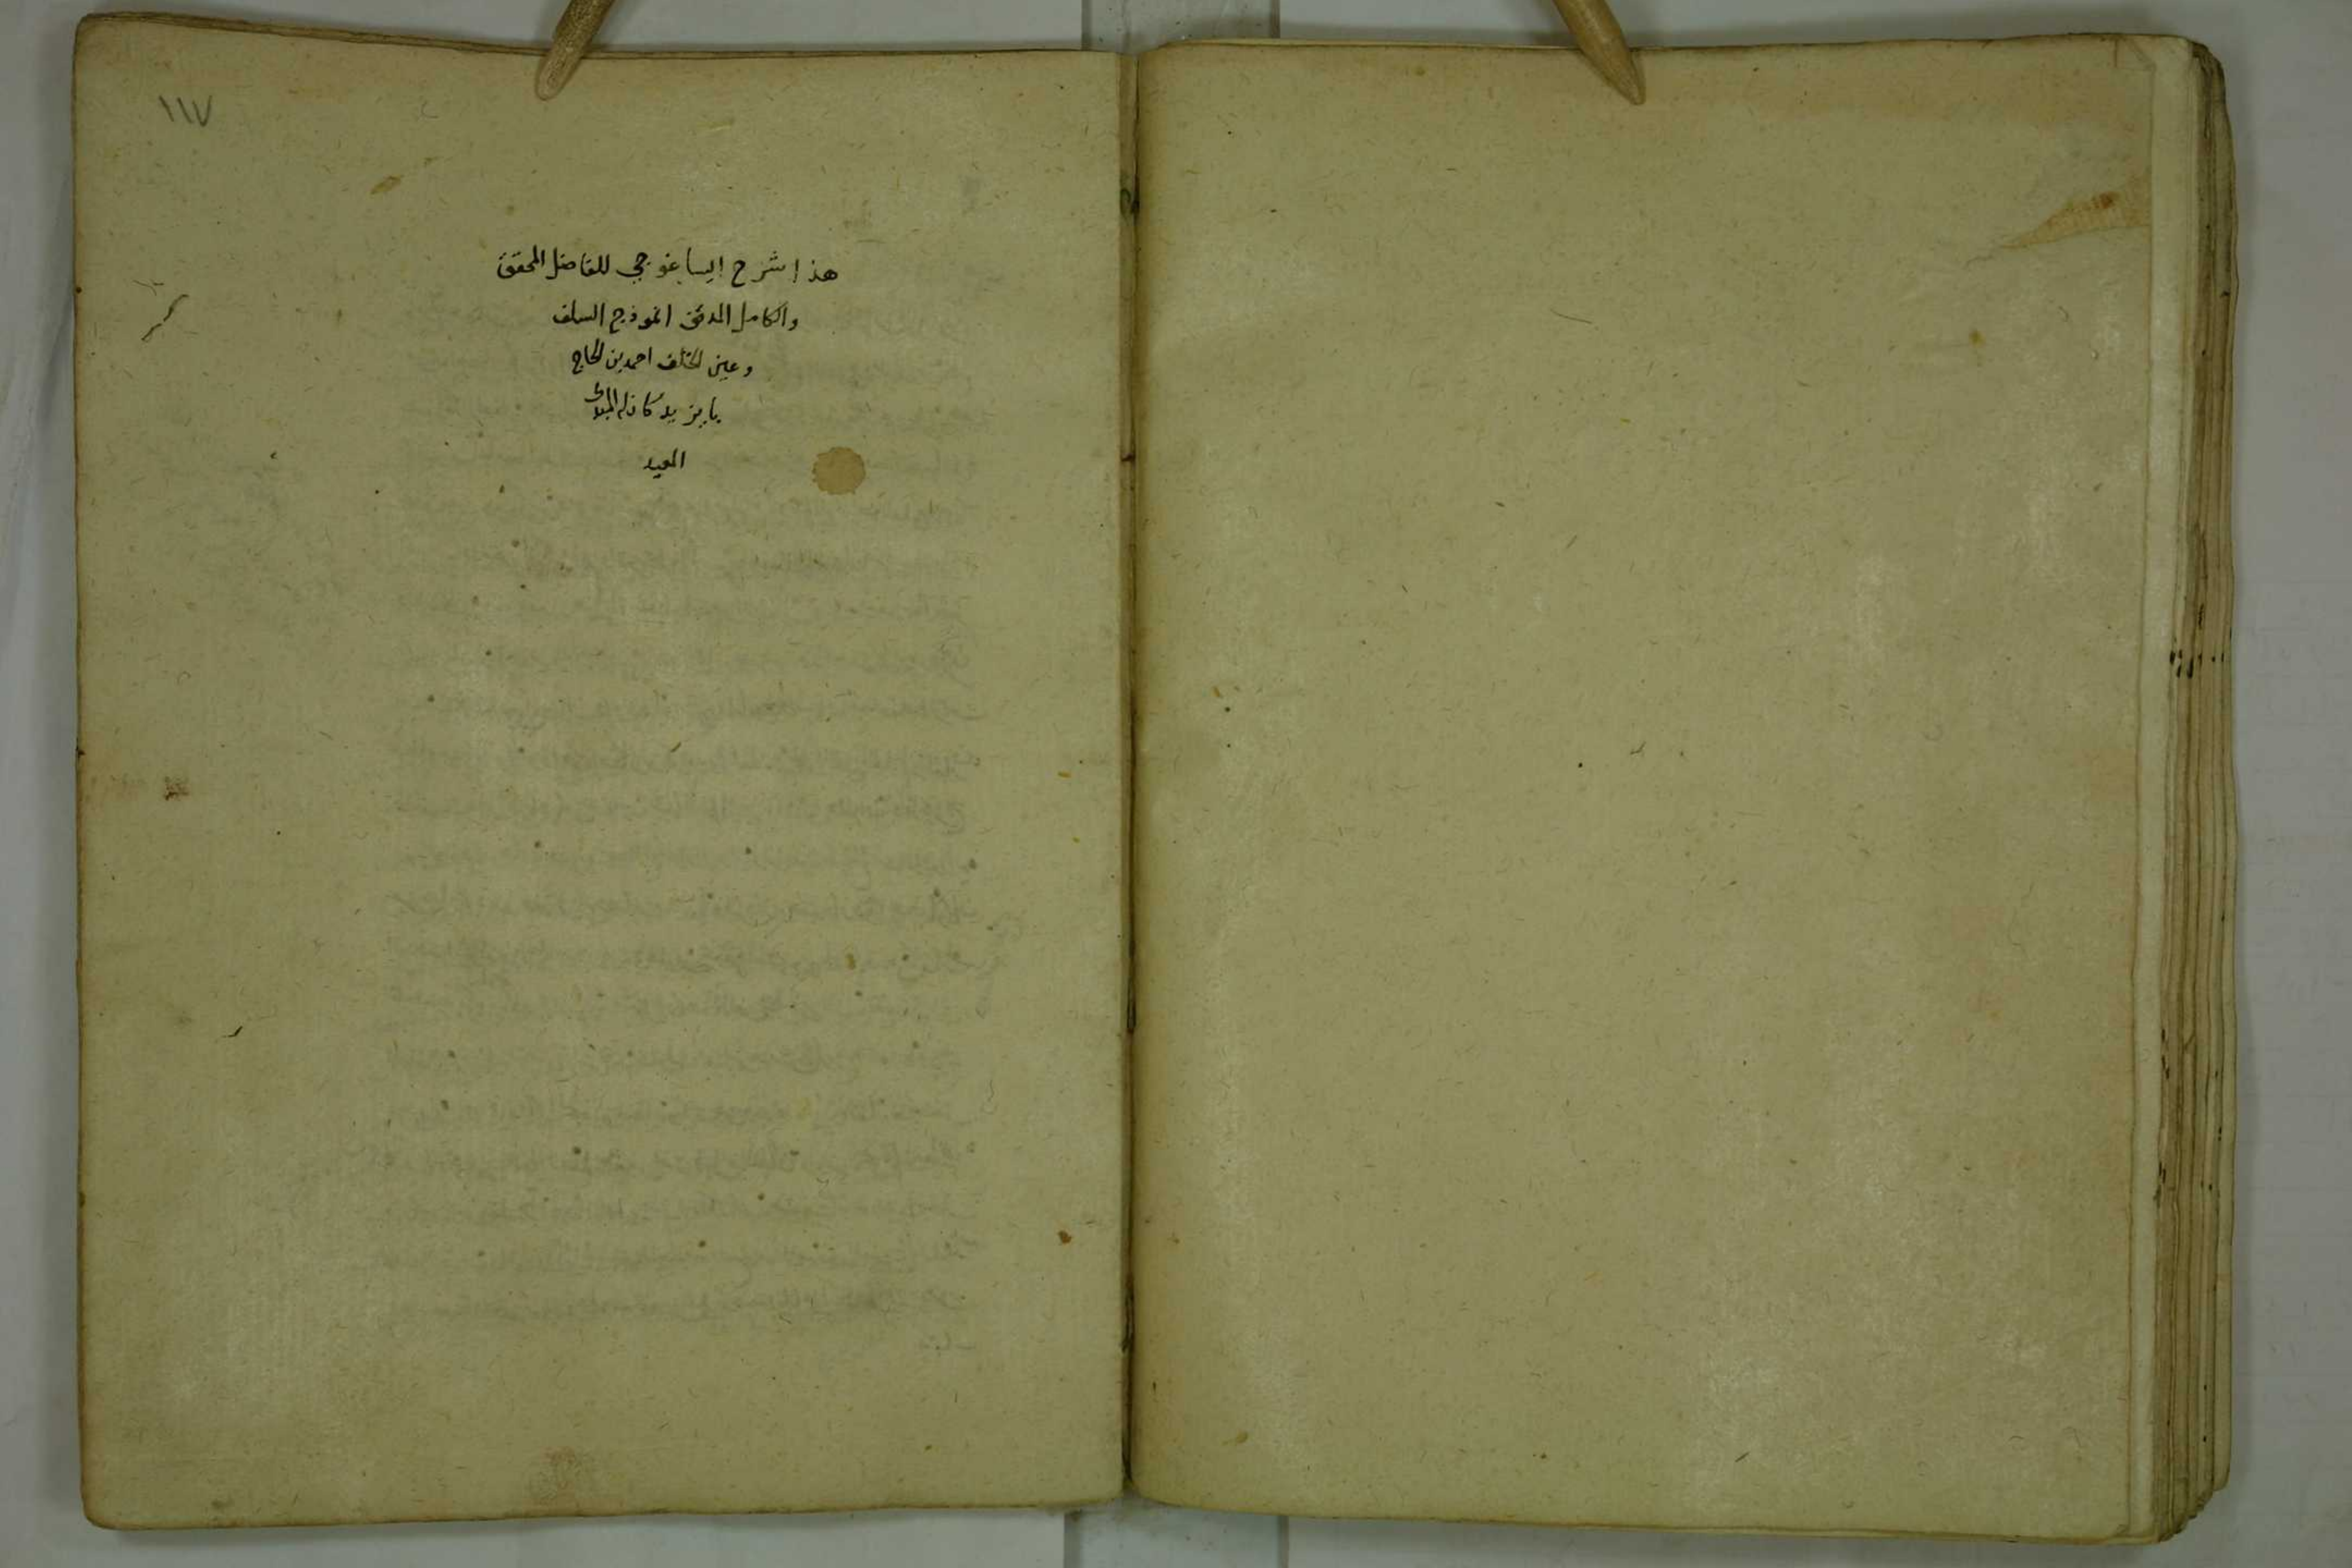 ١١٧
هذا شرح ايساغوجي للفاضل المحقق
والكامل المدقق انموذج السلف
وعين الخلف احمد بن الحاج
بايزيد كان له المبدئ
المعيد